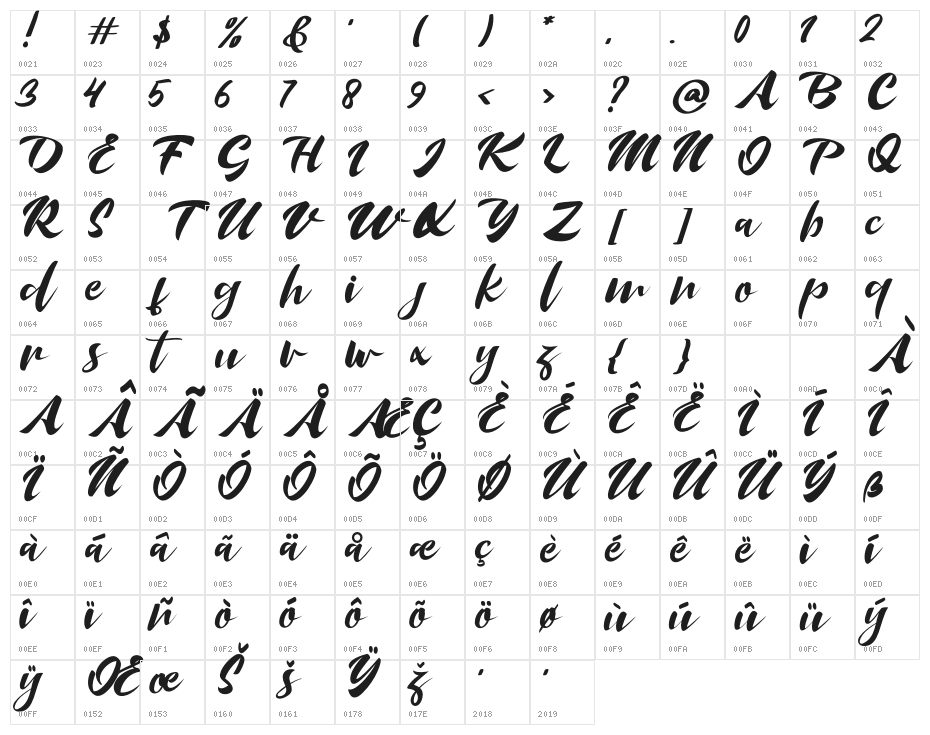 ! # $ % & ' ( ) * , . 0 1 2
0021 0023 0024 0025 0026 0027 0028 0029 002A 002C 002E 0030 0031 0032
3 4 5 6 7 8 9 < > ? @ A B C
0033 0034 0035 0036 0037 0038 0039 003C 003E 003F 0040 0041 0042 0043
D E F G H I J K L M N O P Q
0044 0045 0046 0047 0048 0049 004A 004B 004C 004D 004E 004F 0050 0051
R S T U V W X Y Z [ ] a b c
0052 0053 0054 0055 0056 0057 0058 0059 005A 005B 005D 0061 0062 0063
d e f g h i j k l m n o p q
0064 0065 0066 0067 0068 0069 006A 006B 006C 006D 006E 006F 0070 0071
r s t u v w x y z { } À
0072 0073 0074 0075 0076 0077 0078 0079 007A 007B 007D 00A0 00AD 00C0
A Â Ã Ä Å Æ Ç È É Ê Ë Ì Í Î
00C1 00C2 00C3 00C4 00C5 00C6 00C7 00C8 00C9 00CA 00CB 00CC 00CD 00CE
Ï Ñ Ò Ó Ô Õ Ö Ø Ù U Û Ü Ý ß
00CF 00D1 00D2 00D3 00D4 00D5 00D6 00D8 00D9 00DA 00DB 00DC 00DD 00DF
à á â ã ä å æ ç è é ê ë ì í
00E0 00E1 00E2 00E3 00E4 00E5 00E6 00E7 00E8 00E9 00EA 00EB 00EC 00ED
î ï ñ ò ó ô õ ö ø ù ú û ü ý
00EE 00EF 00F1 00F2 00F3 00F4 00F5 00F6 00F8 00F9 00FA 00FB 00FC 00FD
ÿ Œ œ Š š Ÿ ž ‘ ’
00FF 0152 0153 0160 0161 0178 017E 2018 2019